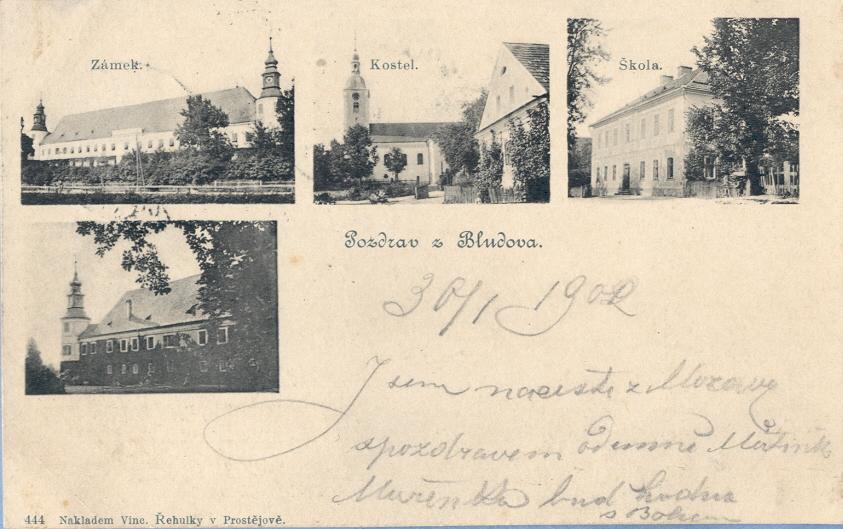 Zámek.
Kostel.
Škola.
Pozdrav z Bludova.
30/1 1902
Jsem na cestě z Moravy
spozdravem odemně
Mařenka bud hodna
s Bohem
444 Nakladem Vinc. Řehulky v Prostějově.